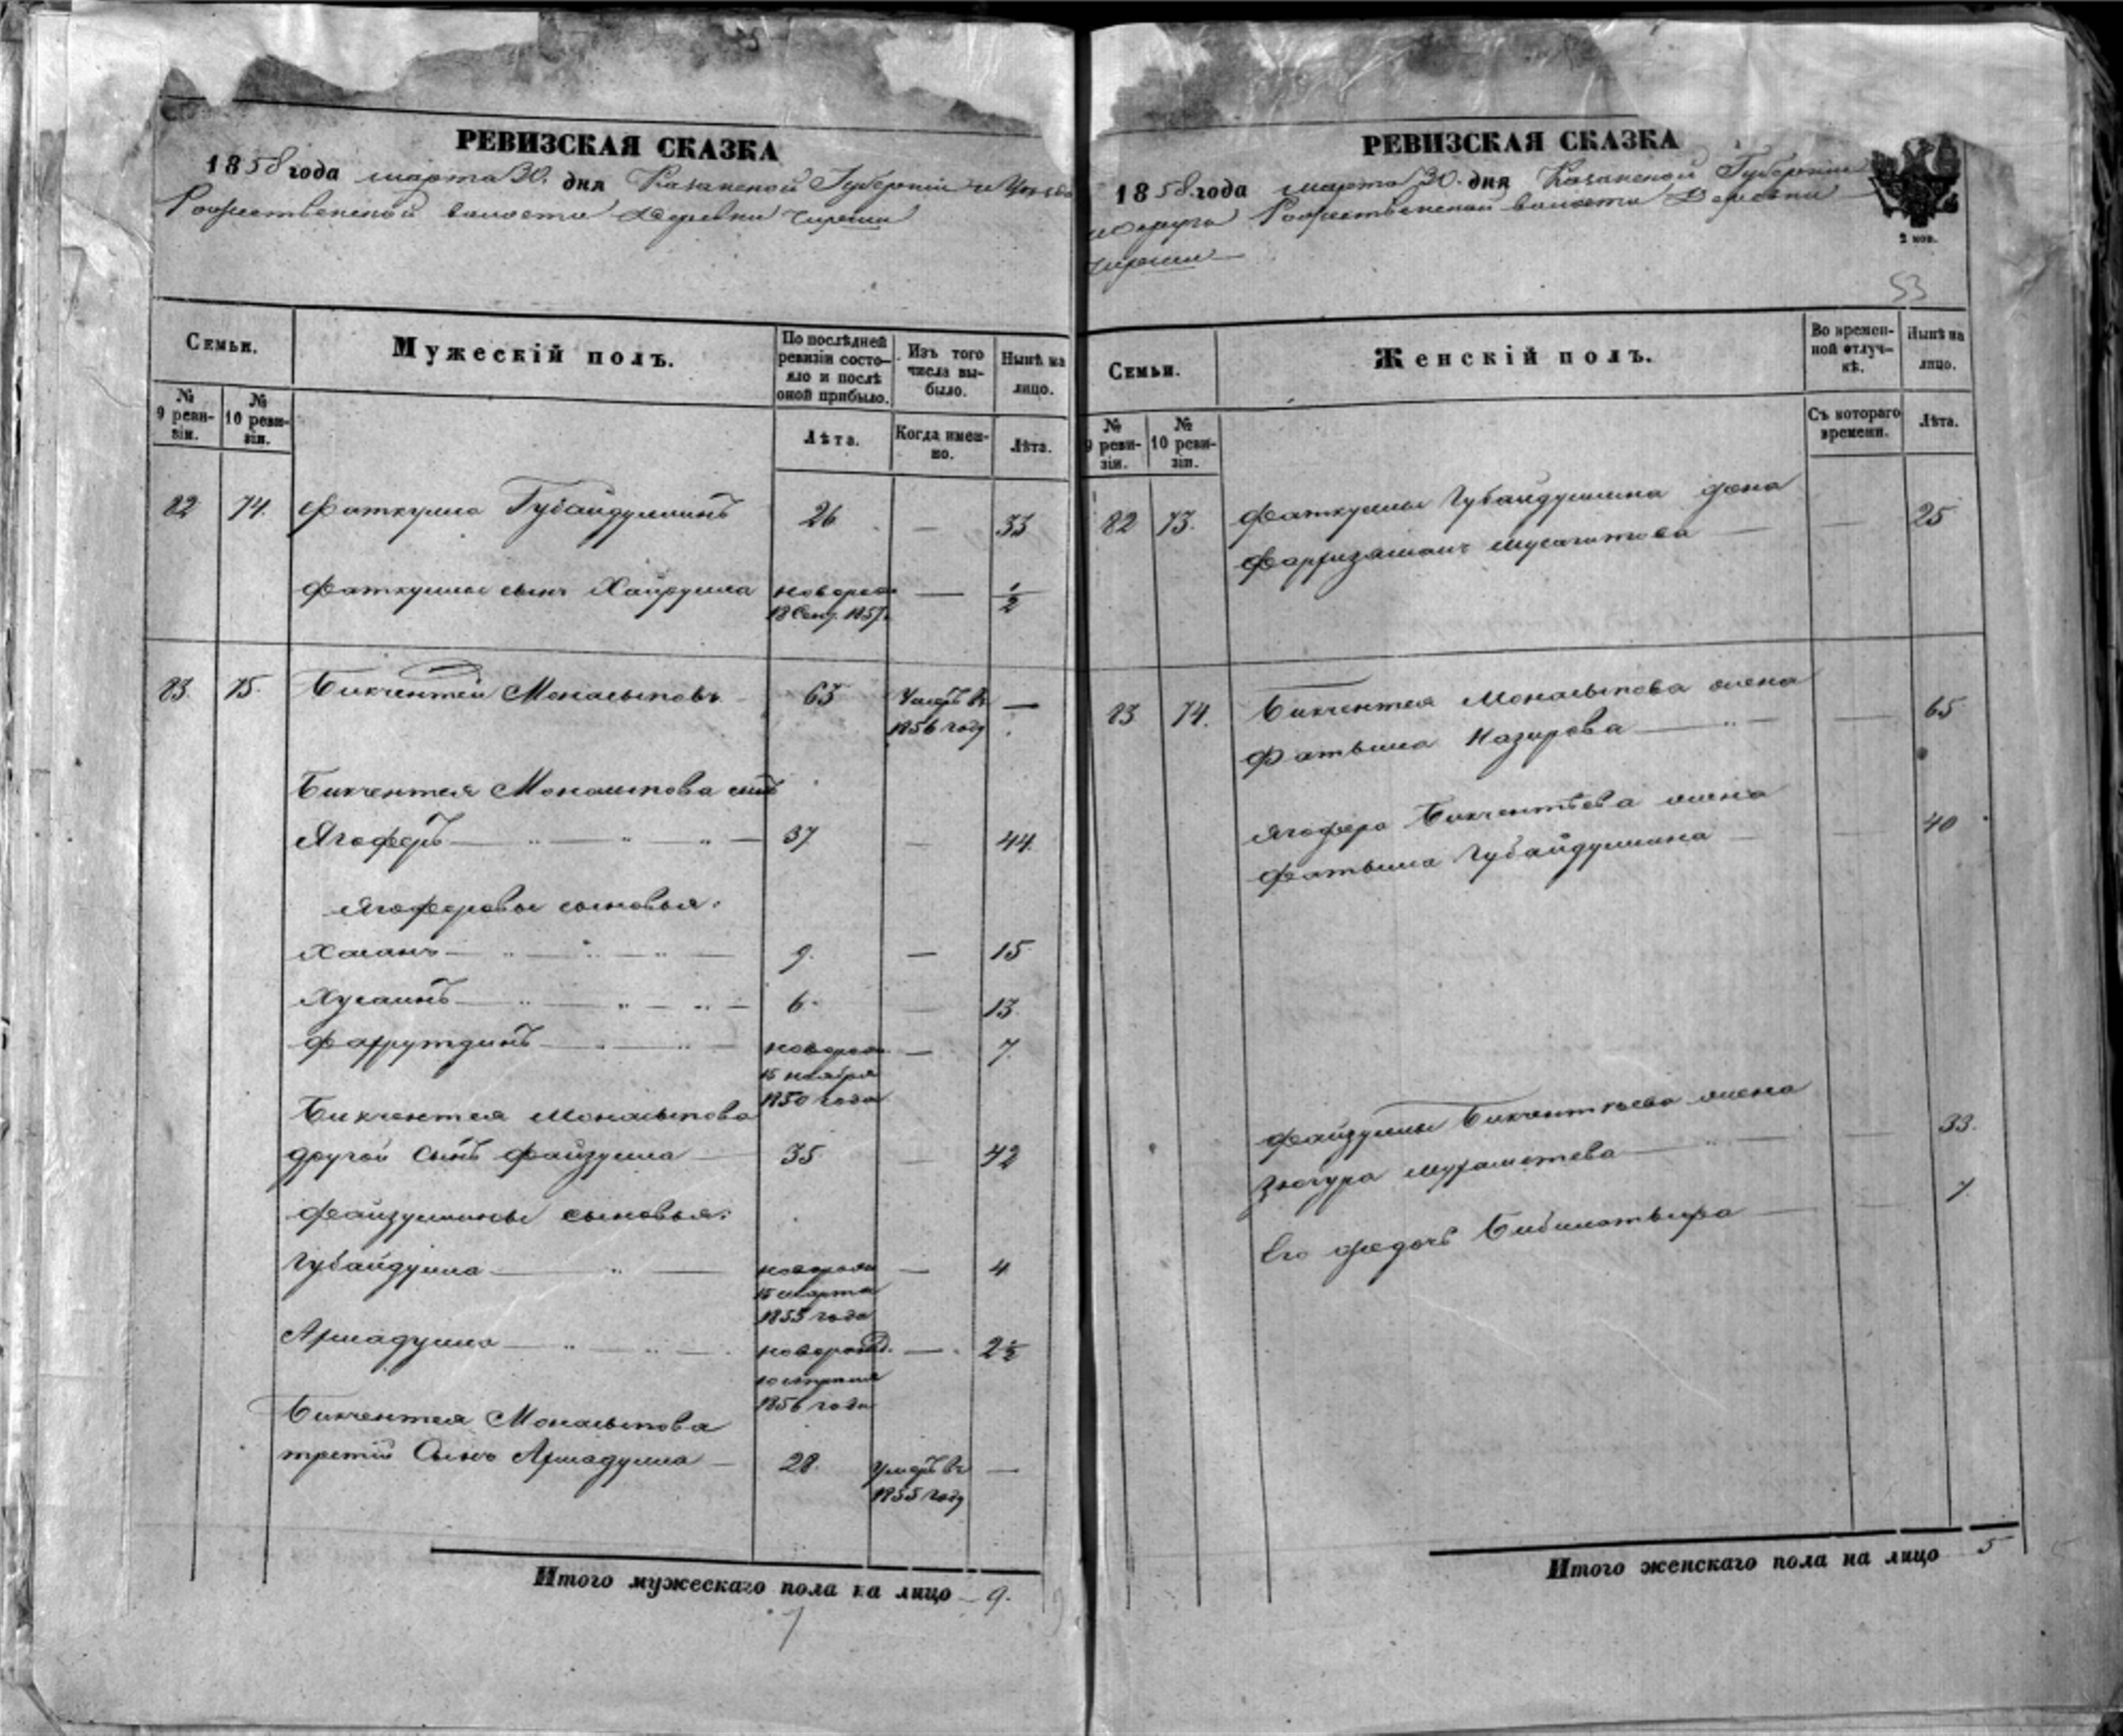 РЕВИЗСКАЯ СКАЗКА
1858 года марта 30. дня Казанской Губернии и
Рождественской волости Деревни Чиреши
Семьи.
Мужескій полъ.
По послѣдней ревизіи состо-
яло и послѣ
оной прибыло.
Изъ того
числа вы-
было.
Нынѣ на
лицо.
№
9 реви-
зіи.
№
10 реви-
зіи.
Лѣта.
Когда имен-
но.
Лѣта.
82 74. Фаткулла Губайдуллинъ 26 — 33
Фаткуллы сынъ Хайрулла новорож. — 1/2
18 Сент. 1857.
83. 75. Бикчентей Монасыповъ 63 Умеръ въ —
1856 году
Бикчентея Монасыпова сынъ
Ягоферъ 37 — 44.
Ягоферовы сыновья:
Хасанъ 9. — 15.
Хусаинъ 6. — 13.
Фахрутдинъ новорож. — 7.
15 ноября
1850 года
Бикчентея Монасыпова
другой Сынъ Файзулла 35 — 42
Файзуллины сыновья:
Губайдулла новорож — 4
15 марта
1855 года
Ахмадулла новорожд. — 2 1/2
1856 года
Бикчентея Монасыпова
третій Сынъ Ахмадулла — 28. умеръ въ —
1855 году
Итого мужескаго пола на лицо 9.
РЕВИЗСКАЯ СКАЗКА
1858. года марта 30. дня Казанской Губерніи
округа Рождественской волости Деревни
Чиреши
2 коп.
53
Семьи.
Женскій полъ.
Во времен-
ной отлуч-
кѣ.
Нынѣ на
лицо.
№
9 реви-
зіи.
№
10 реви-
зіи.
Съ котораго
времени.
Лѣта.
82 73. Фаткуллы Губайдуллина жена
Мусагитова — 25
83 74. Бикчентея Монасыпова жена
Фатыма Назирова — 65
Ягофера Бикчентѣева жена
Фатыма Губайдуллина — 40
Файзуллы Бикчентѣева жена
Зюгура — 33.
Его дочь — 1
Итого женскаго пола на лицо 5